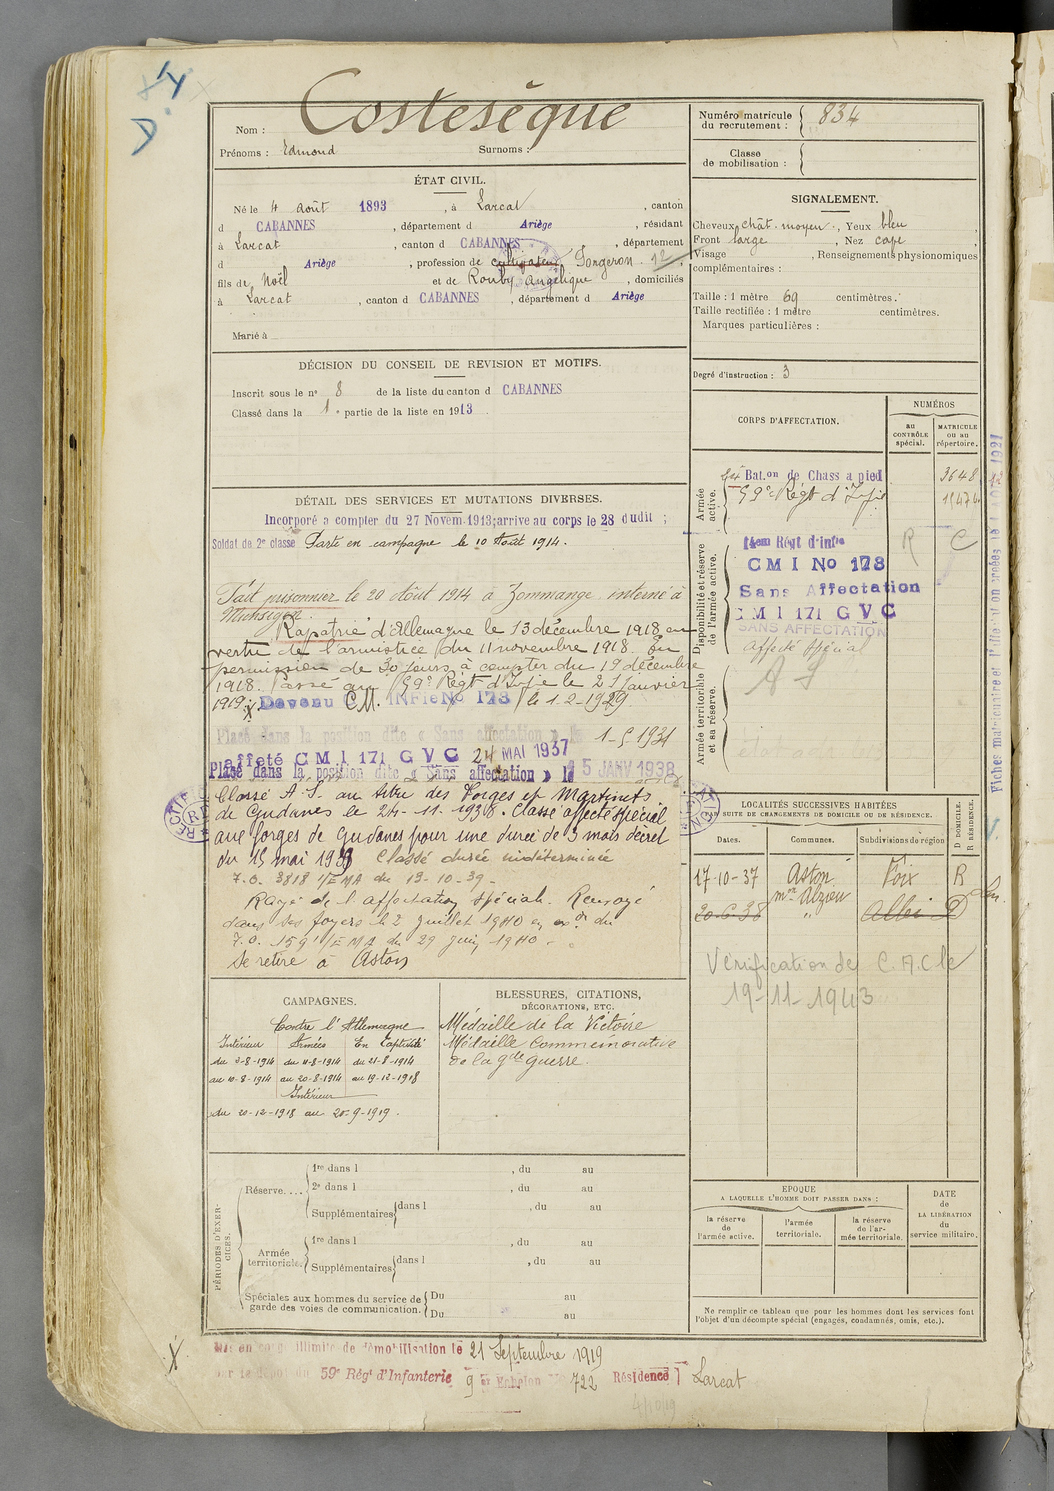 Nom : Costesèque
Prénoms : Edmond Surnoms :
ÉTAT CIVIL.
Né le 4 août 1893, à Larcat, canton
d CABANNES, département d Ariège, résidant
à Larcat, canton d CABANNES, département
d Ariège, profession de cultivateur Forgeron
fils de Noël et de Rouby Angélique, domiciliés
à Larcat, canton d CABANNES, département d Ariège
Marié à
DÉCISION DU CONSEIL DE REVISION ET MOTIFS.
Inscrit sous le nº 8 de la liste du canton d CABANNES
Classé dans la 1e partie de la liste en 1913.
DÉTAIL DES SERVICES ET MUTATIONS DIVERSES.
Incorporé a compter du 27 Novem. 1913; arrive au corps le 28 dudit ;
Soldat de 2e classe Parti en campagne le 10 Août 1914.
Fait prisonnier le 20 Août 1914 à Zommange interné à
Rapatrié d'Allemagne le 13 décembre 1918 en
vertu de l'armistice du 11 novembre 1918. En
permission de 30 jours à compter du 19 décembre
1918. Passé au 59e Régt d'Infie le 21 janvier
1919. Devenu C.M. INFie No 178 le 1-2-1929
Placé dans la position dite « Sans affectation » le 1-5 1934
affeté CM I 171 G VC 24 MAI 1937
Placé dans la position dite « Sans affectation » le 15 JANV 1938
Classé A.S. au titre des Forges et Martinets
de Gudanes le 24-11-1938. Classé affecté spécial
aux forges de Gudanes pour une durée de 3 mois décret
du 15 mai 1939 Classé durée indéterminée
F.O. 3818 I/EMA du 13-10-39-
Rayé de l'affectation spéciale. Renvoyé
dans ses foyers le 2 juillet 1940 en exon du
F.O. 1591/EMA du 29 juin 1940
se retire à Aston
CAMPAGNES.
Contre l'Allemagne
Intérieur Armées En Captivité
du 2-8-1914 du 11-8-1914 du 21-8-1914
au 10-8-1914 au 20-8-1914 au 19-12-1918
Intérieur
du 20-12-1918 au 20-9-1919.
BLESSURES, CITATIONS,
DÉCORATIONS, ETC.
Médaille de la Victoire
Médaille Commémorative
de la gde guerre.
PÉRIODES D'EXERCICES.
Réserve....
1re dans l , du au
2e dans l , du au
Supplémentaires dans l , du au
Armée territoriale.
1re dans l , du au
Supplémentaires dans l , du au
Spéciales aux hommes du service de
garde des voies de communication.
Du au
Du au
Mis en congé illimité de démobilisation le 21 Septembre 1919
par le dépôt du 59e Régt d'Infanterie 9 e Echelon No 722 Résidence Larcat
4/10/19
Numéro matricule
du recrutement : 834
Classe
de mobilisation :
SIGNALEMENT.
Cheveux chât. moyen, Yeux bleu
Front large, Nez cave
Visage , Renseignements physionomiques
complémentaires :
Taille : 1 mètre 69 centimètres.
Taille rectifiée : 1 mètre centimètres.
Marques particulières :
Degré d'instruction : 3
CORPS D'AFFECTATION.
NUMÉROS
au
CONTRÔLE
spécial.
MATRICULE
ou au
répertoire.
Armée
active.
Bat.on de Chass a pied 3648
59e Régt d'Infie
Disponibilité et réserve
de l'armée active.
14em Régt d'infie
C M I No 178
Sans Affectation
C M I 171 G VC
SANS AFFECTATION
affecté spécial
R C
Armée territoriale
et sa réserve.
A S
LOCALITÉS SUCCESSIVES HABITÉES
PAR SUITE DE CHANGEMENTS DE DOMICILE OU DE RÉSIDENCE.
Dates. Communes. Subdivisions de région
D DOMICILE.
R RÉSIDENCE.
17-10-37 Aston Foix R
20-6-38 " Albi D
Vérification de C.A.C le
19-11-1943
EPOQUE
A LAQUELLE L'HOMME DOIT PASSER DANS :
la réserve
de
l'armée active.
l'armée
territoriale.
la réserve
de l'ar-
mée territoriale.
DATE
de
LA LIBÉRATION
du
service militaire.
Ne remplir ce tableau que pour les hommes dont les services font
l'objet d'un décompte spécial (engagés, condamnés, omis, etc.).